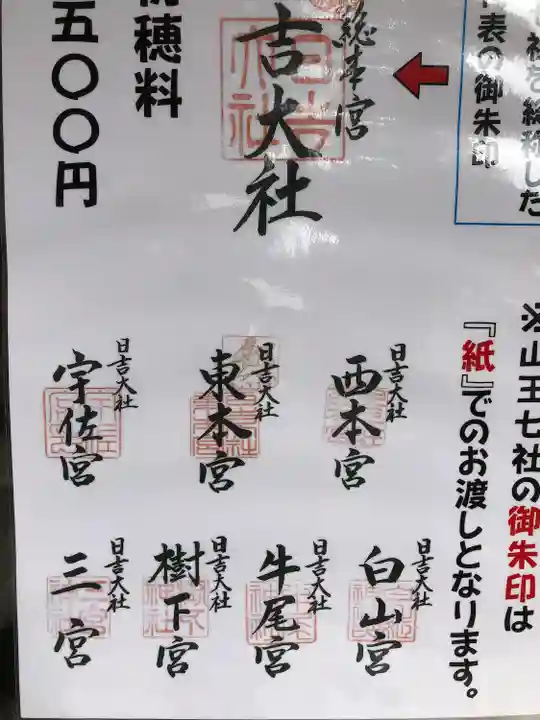 社を総称した
代表の御朱印
総本宮
吉大社
初穂料
五〇〇円
※山王七社の御朱印は
『紙』でのお渡しとなります。
日吉大社
西本宮
日吉大社
東本宮
日吉大社
宇佐宮
日吉大社
白山宮
日吉大社
牛尾宮
日吉大社
樹下宮
日吉大社
三宮